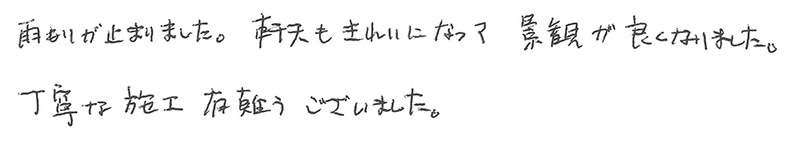 雨もりが止まりました。軒天もきれいになって 景観が良くなりました。
丁寧な施工 有難うございました。